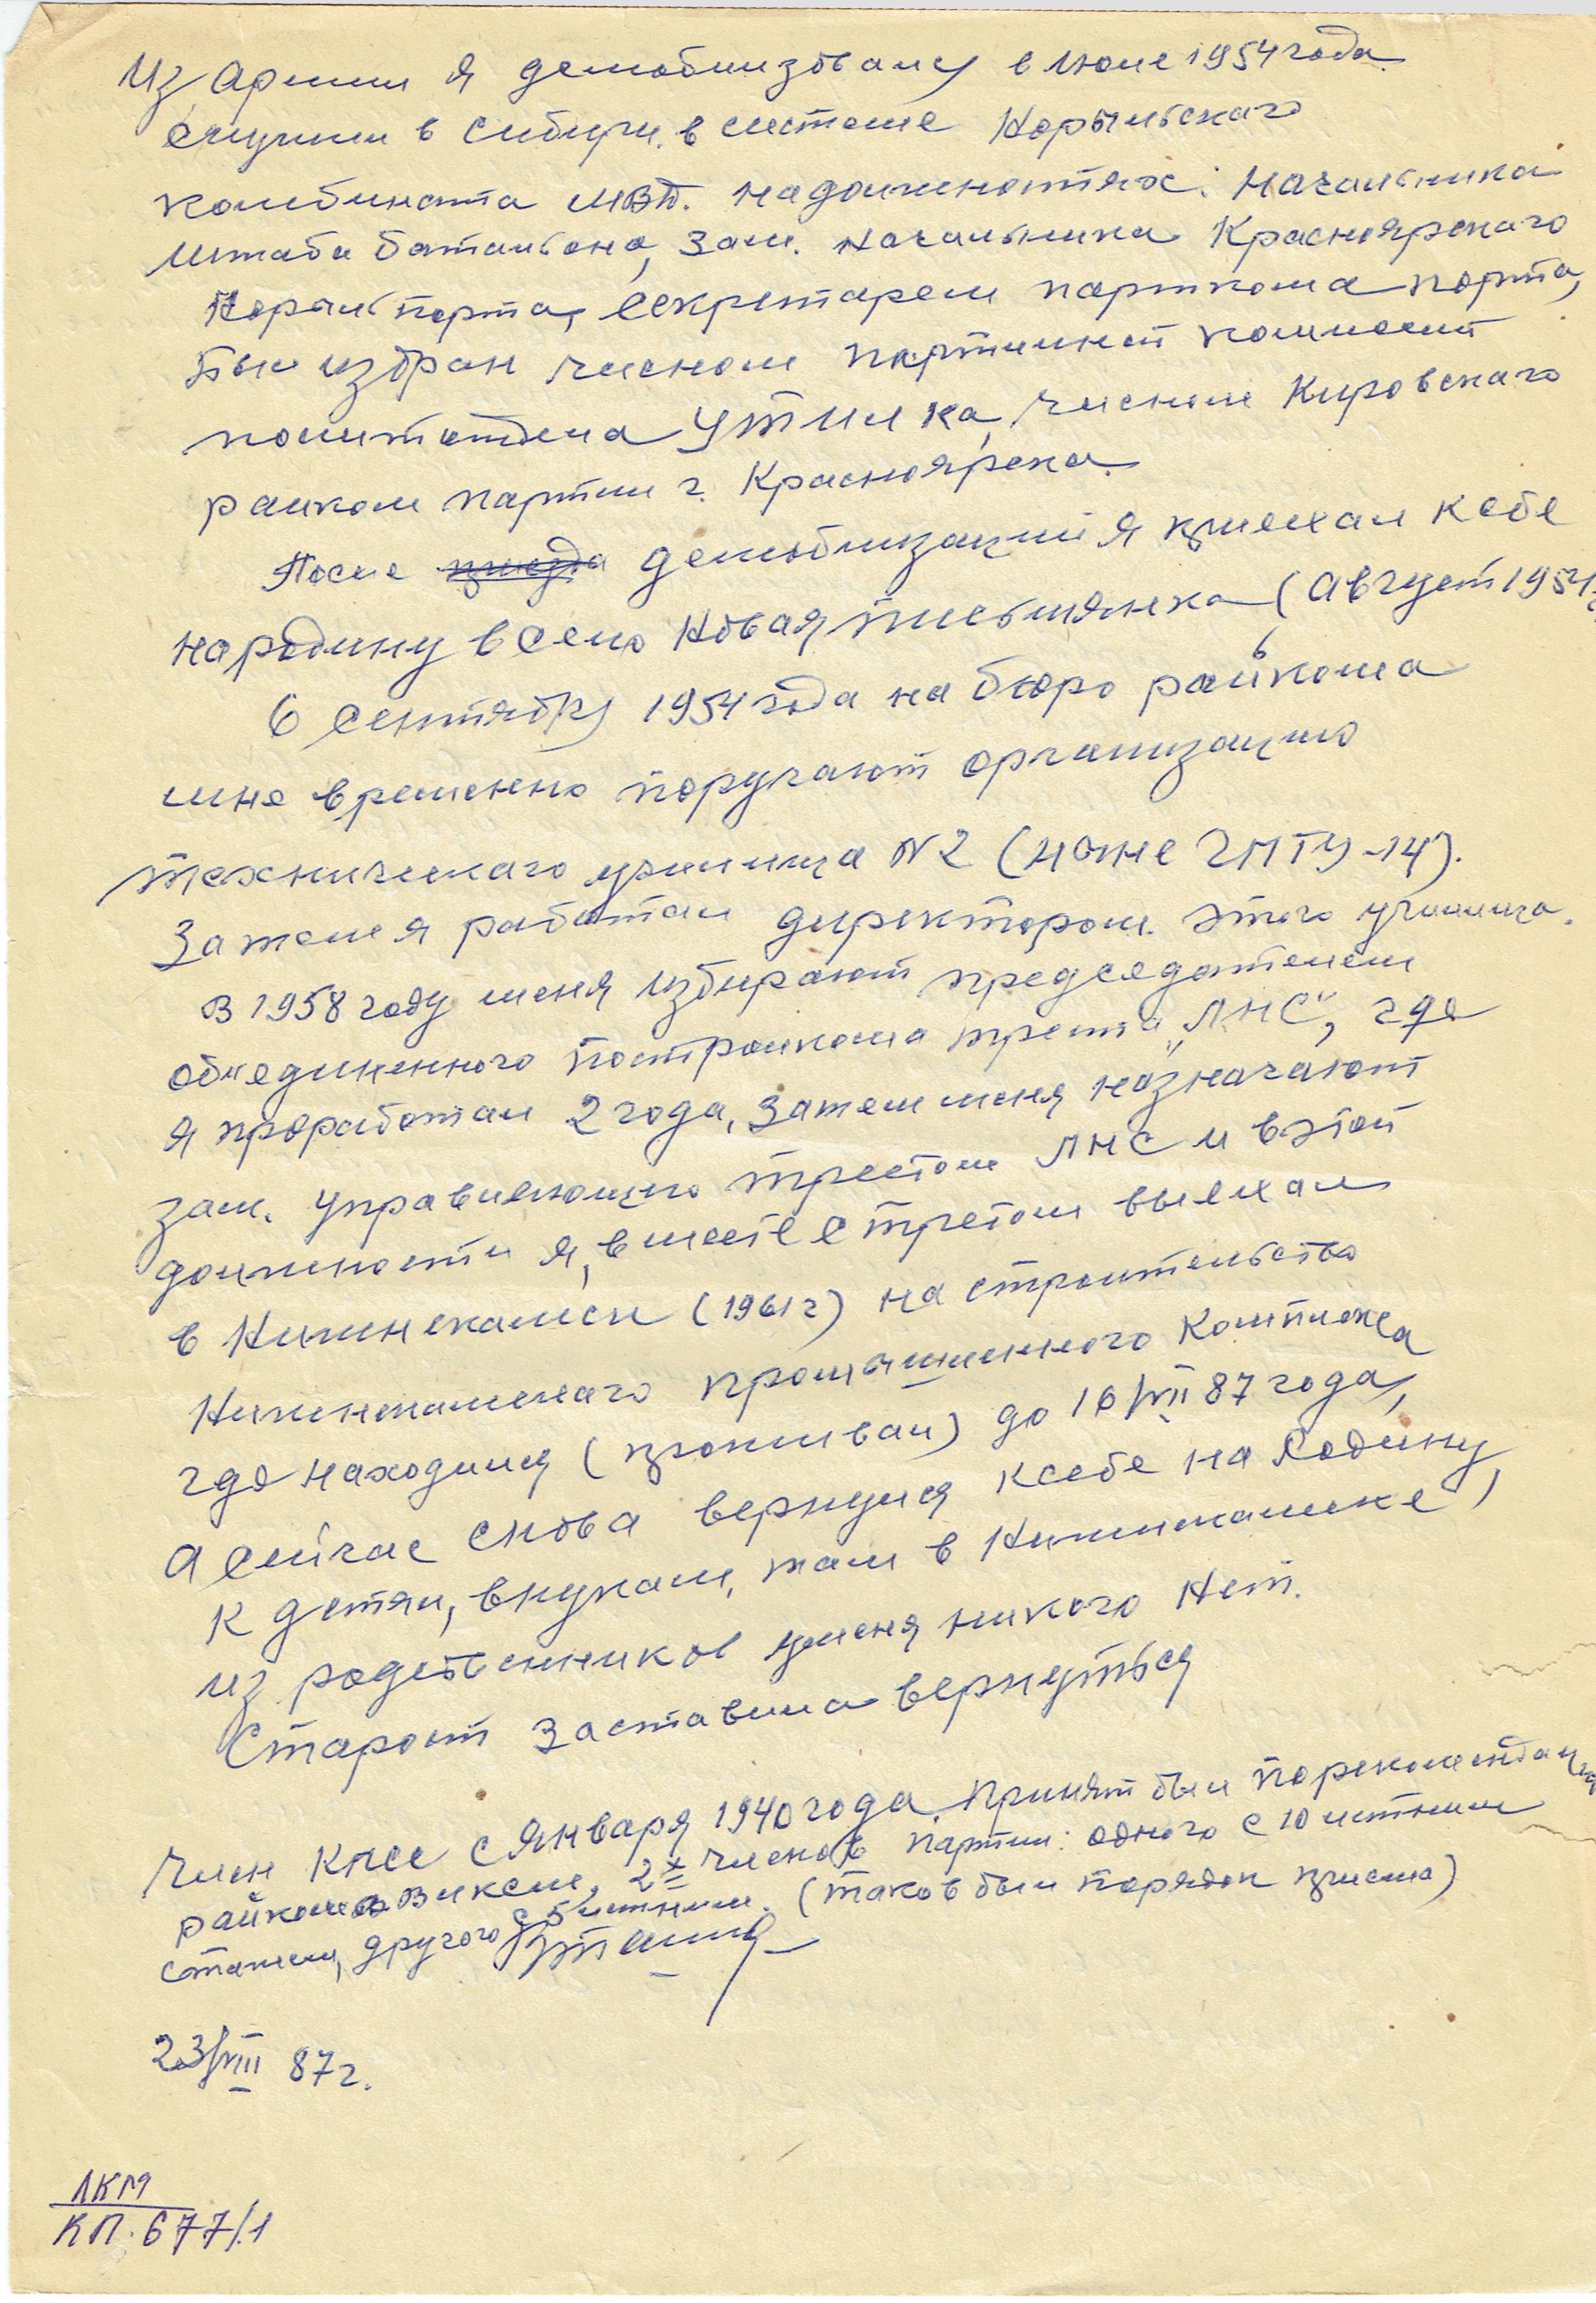 Из армии я демобилизовану в июне 1954 года
служил в Сибири. в системе Норыльского
комбината МВД. на должностях: Начальника
штаба батальона, зам. начальника Красноярского
Норыльпорта, секретарем парткома порта,
был избран членом партийной комиссии
политотдела УТИЛка, членом Кировского
райком партии г. Красноярска.
После демобилизаций я приехал к себе
на родину в село Новая Письмянка (август 1954 г
В сентябру 1954 года на бюро райкома
мне временно поручают организацию
технического училища N 2 (ныне ГПТУ-14).
Затем я работал директором. этого училища.
в 1958 году меня избирают председателем
объединенного постройкома треста „ЛНС", где
я проработал 2 года, затем меня назначают
зам. управляющего трестом ЛНС и в этой
должности я, вместе с трестом выехал
в Нижнекамск (1961 г) на строительство
Нижнекамского промышленного Комплекса
где находился (проживал) до 16/VII 87 года,
а сейчас снова вернулся к себе на Родину,
к детям, внукам, там в Нижнекамске,
из родственников у меня никого нет.
Старост заставила вернуться
Член КПСС с Января 1940 года. Принят был по рекомендации
райкома ВЛКСМ, 2х членов партии: одного с 10 летним
стажем, другого с 5 летним. (таков был порядок приема)
23/VIII 87 г.
ЛКМ
КП. 677/1